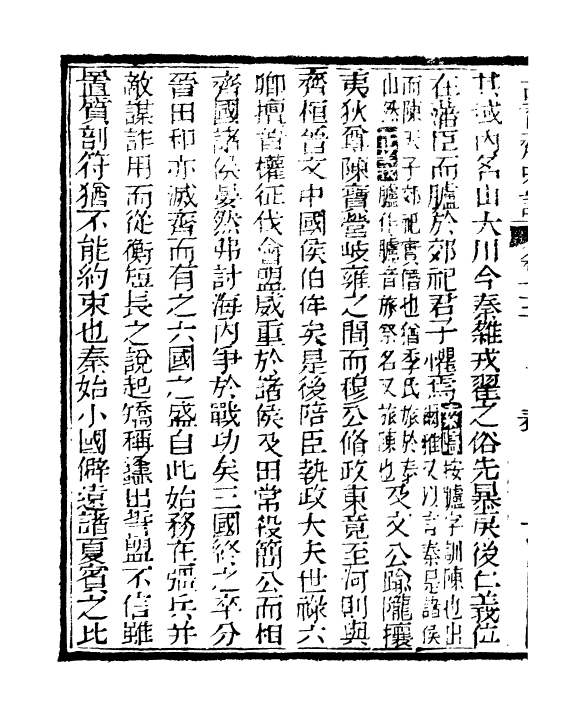 其域內名山大川今秦雜戎翟之俗先暴戾後仁義位
在藩臣而臚於郊祀君子懼焉
索隱按臚字訓陳也出
爾雅又以言秦是諸侯
而陳天子郊祀實僭也猶季氏旅於泰
山然正義臚作臚音旅祭名又旅陳也
及文公踰隴攘
夷狄尊陳寶營岐雍之間而穆公脩政東竟至河則與
齊桓晉文中國侯伯侔矣是後陪臣執政大夫世祿六
卿擅晉權征伐會盟威重於諸侯及田常殺簡公而相
齊國諸侯晏然弗討海內爭於戰功矣三國終之卒分
晉田和亦滅齊而有之六國之盛自此始務在彊兵并
敵謀詐用而從衡短長之說起矯稱蠭出誓盟不信雖
置質剖符猶不能約束也秦始小國僻遠諸夏賓之比